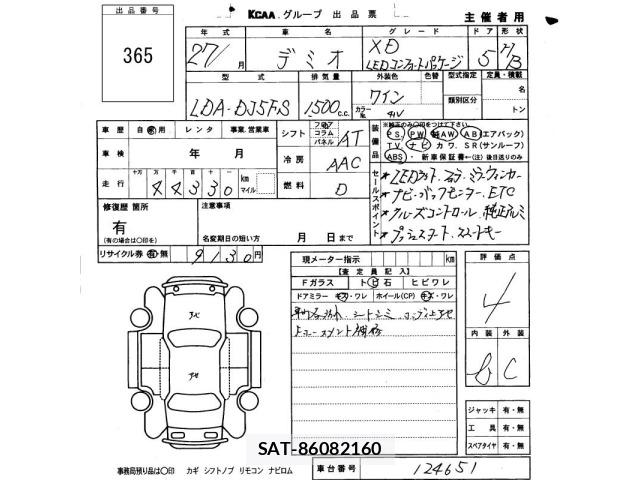 出品番号 KCAA グループ 出品票 主催者用
365
年式 車名 グレード ドア 形状
27/月 デミオ XD LEDコンフォートパッケージ 5 H/B
型式 排気量 外装色 色替 型式指定 定員・積載
LDA-DJ5FS 1500 c.c. ワイン カラーNo. 41V 類別区分 名 トン
車歴 自家用 レンタ 事業.営業車 シフト フロア コラム パネル AT
装備品 ※純正のみ○印をつけて下さい。
PS. PW. AW. AB(エアバッグ)
TV. ナビ カワ. SR(サンルーフ)
ABS. 新車保証書←(注)後日送りのみ
車検 年 月 冷房 AAC
走行 十万 万 千 百 十 km マイル
44330 燃料 D
セールスポイント
ナビ・バックモニター. ETC
クルーズコントロール. 純正アルミ
プッシュスタート. スマートキー
修復歴 箇所 注意事項
有
(有の場合は○印を) 名変期日の短い方 月 日まで
リサイクル券 有・無 9130円
現メーター指示 km 評価点
【査定員記入】
Fガラス トビ石 ヒビワレ
ドアミラー キズ・ワレ ホイール(CP) キズ・ワレ
4
内装 外装
C
ジャッキ 有・無
工具 有・無
スペアタイヤ 有・無
SAT-86082160
事務局預り品は○印 カギ シフトノブ リモコン ナビロム 車台番号 124651